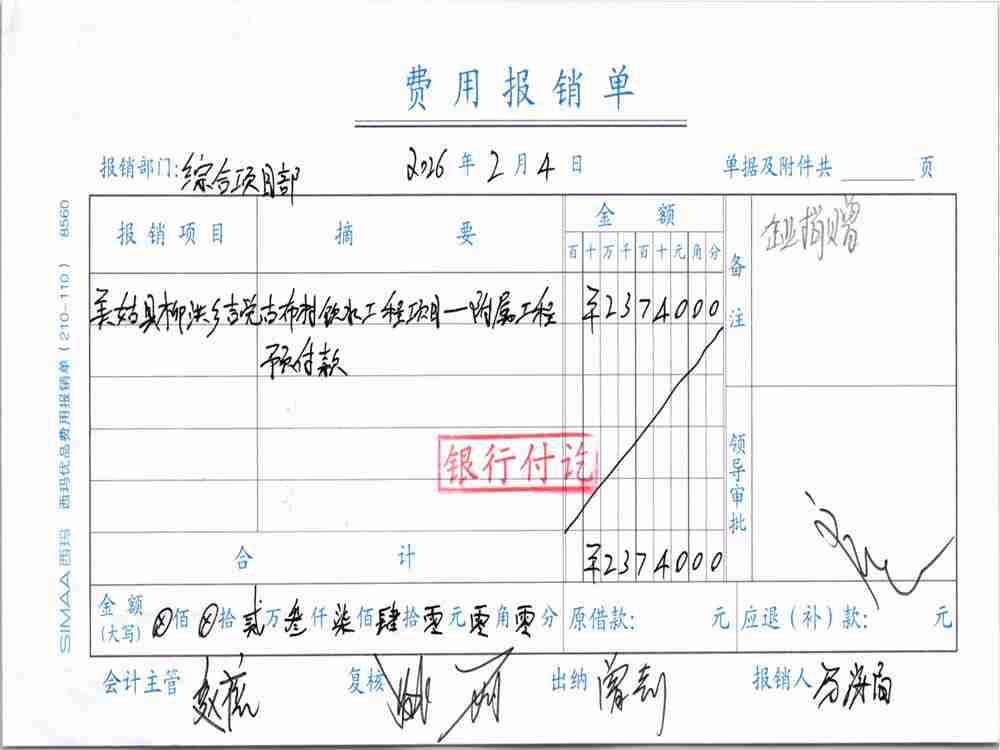 费用报销单
报销部门:综合项目部 2026年2月4日 单据及附件共 页
报销项目 摘要 金额 备注 企业捐赠
百十万千百十元角分
美姑县柳洪乡吉觉吉布村饮水工程项目一附属工程 ¥2374000
预付款
银行付讫
领导审批
合计 ¥2374000
金额(大写) ⊗佰⊗拾贰万叁仟柒佰肆拾零元零角零分 原借款: 元 应退(补)款: 元
会计主管 复核 出纳 报销人
SIMAA西玛 西玛优品费用报销单(210-110) 8560